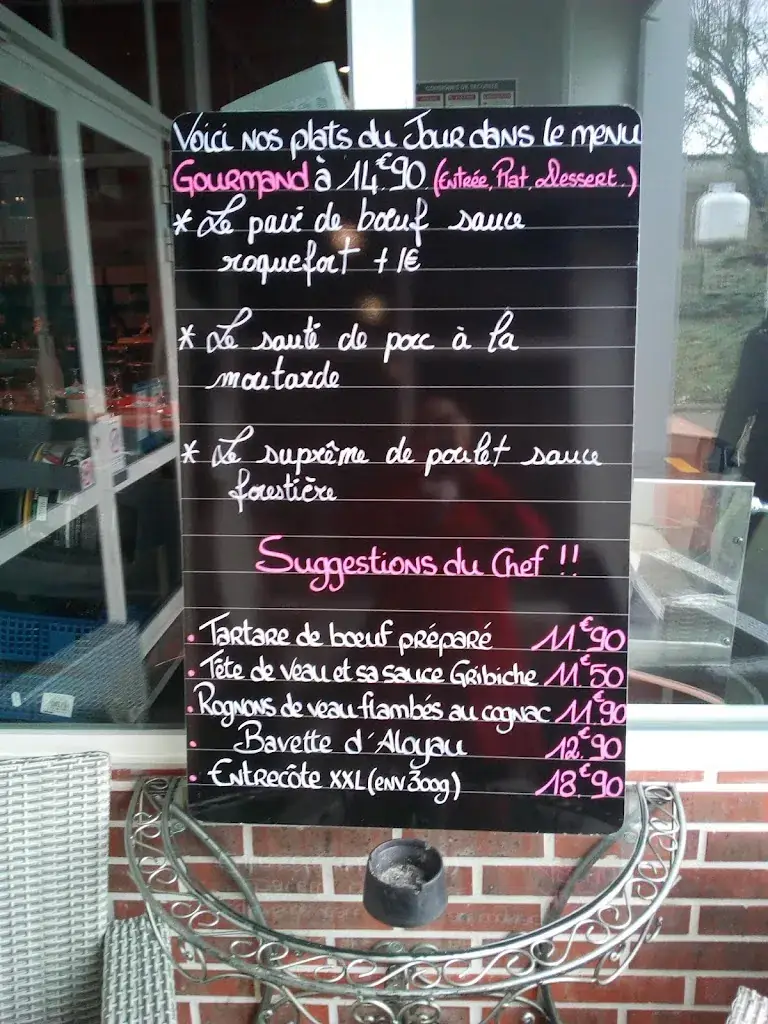 Voici nos plats du Jour dans le menu
Gourmand à 14€90 (Entrée, Plat, Dessert.)
* Le pavé de bœuf sauce
roquefort + 1€
* Le sauté de porc à la
moutarde
* Le suprême de poulet sauce
forestière
Suggestions du Chef !!
• Tartare de bœuf préparé 11€90
• Tête de veau et sa sauce Gribiche 11€50
• Rognons de veau flambés au cognac 11€90
• Bavette d'Aloyau 12€90
• Entrecôte XXL (env 300g) 18€90